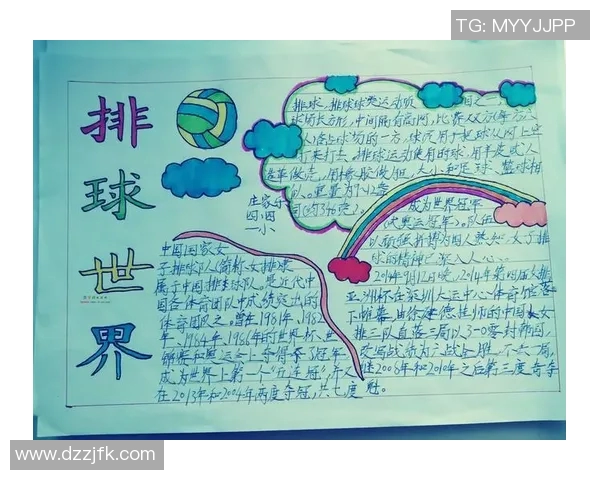 TG: MYYJJPP
排
球
世
界
排球,排球球类运动项目之一,
球场长方形,中间隔有高网,比赛双方各方
占球场的一方,球员用手把球从网上空
打来打去。排球运动使用的球,用羊皮或人
造革做壳,用橡胶做胆,大小和足球、篮球相
似,重量为
庄家乐
四·四
一小
成为世界冠军
(奥运冠军)。队伍
以顽强拼搏为国人熟知,女子排
球的精神已深入人心。
2014年9月12日晚,2014年第四届女排
亚洲杯在深圳大运中心体育馆落
下帷幕,由徐建德挂帅的中国女
排三队直落三局以3-0零封韩国,
继2008年和2010年之后第三度夺
中国国家女
子排球队(简称女排隶
属于中国排球队。是近代中
国各体育团队中成绩突出的
体育团队之一。曾在1981年、1982
年、1984年、1986年的世界杯、世
锦赛和奥运会上夺得冠军
成为世界上第一个“五连冠”,并又
在2013年和2004年两度夺冠,共七度 冠。
www.dzzjfk.com